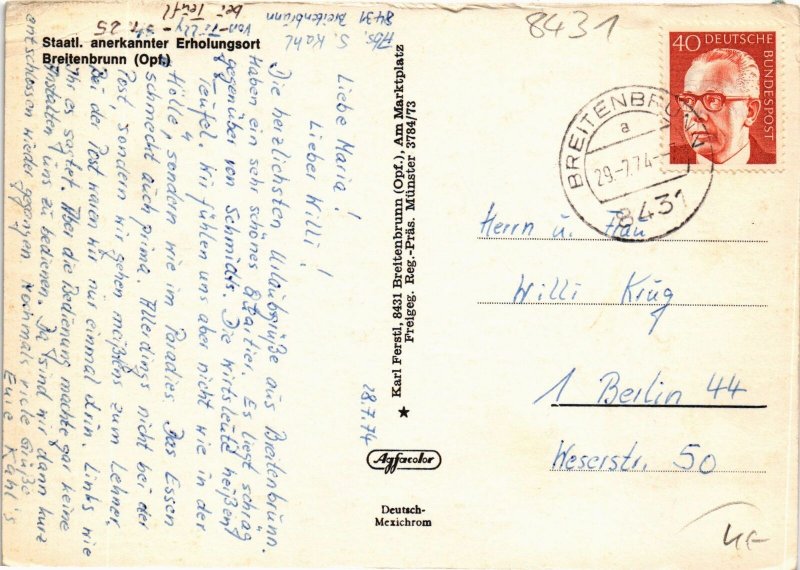 Staatl. anerkannter Erholungsort
Breitenbrunn (Opf.)
Abs. S. Kahl
8431 Breitenbrunn
Von-Tilly-Str. 25
bei Teufl
Liebe Maria!
Lieber Willi!
Die herzlichsten Urlaubsgrüße aus Breitenbrunn.
Haben ein sehr schönes Quatier. Es liegt schräg
gegenüber von Schmidts. Die Wirtsleute heißen
Teufel. Wir fühlen uns aber nicht wie in der
Hölle, sondern wie im Paradies. Das Essen
schmeckt auch prima. Allerdings nicht bei der
Post, sondern wir gehen meistens zum Lehner.
Bei der Post waren wir nur einmal drin. Links wie
ihr es sagtet. Aber die Bedienung machte gar keine
Anstalten uns zu bedienen. Da sind wir dann kurz
entschlossen wieder gegangen. Nochmals viele Grüße
Eure Kahl's
28.7.74
Karl Ferstl, 8431 Breitenbrunn (Opf.), Am Marktplatz
Freigeg. Reg.-Präs. Münster 3784/73
Agfacolor
Deutsch-
Mexichrom
8431
40 DEUTSCHE
BUNDESPOST
BREITENBRUNN
a
29.-7.74
8431
Herrn u. Frau
Willi Krug
1 Berlin 44
Weserstr. 50